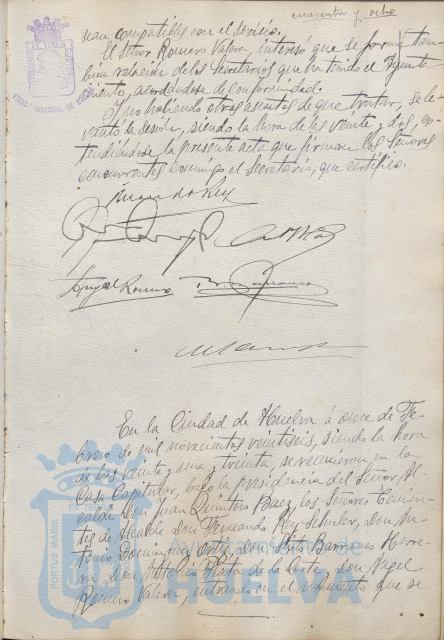 cuarenta y ocho
sean compatibles con el servicio.
El Señor Romero Valera, interesó que se forme tam-
bien relación de los Secretarios que ha tenido el Ayunta-
miento, acordándose de conformidad.
Y no habiendo otros asuntos de que tratar, se le-
vantó la sesión, siendo la hora de las veinte y dos, ex-
tendiéndose la presente acta que firman los Señores
concurrentes conmigo el Secretario, que certifico.
Angel Romero
En la Ciudad de Huelva á once de Fe-
brero de mil novecientos veintiseis, siendo la hora
de las veinte, una y treinta, se reunieron en la
Casa Capitular, bajo la presidencia del Señor Al-
calde Don Juan Quintero Baez, los Señores Tenien-
tes de Alcalde Don Fernando Rey Don An-
tonio Dominguez Don Luis Barranco Herre-
ra, Don Antonio Plata de la Corte, Don Angel
Romero Valera, entrando en el momento que se
PORTUS MARIS
HUELVA